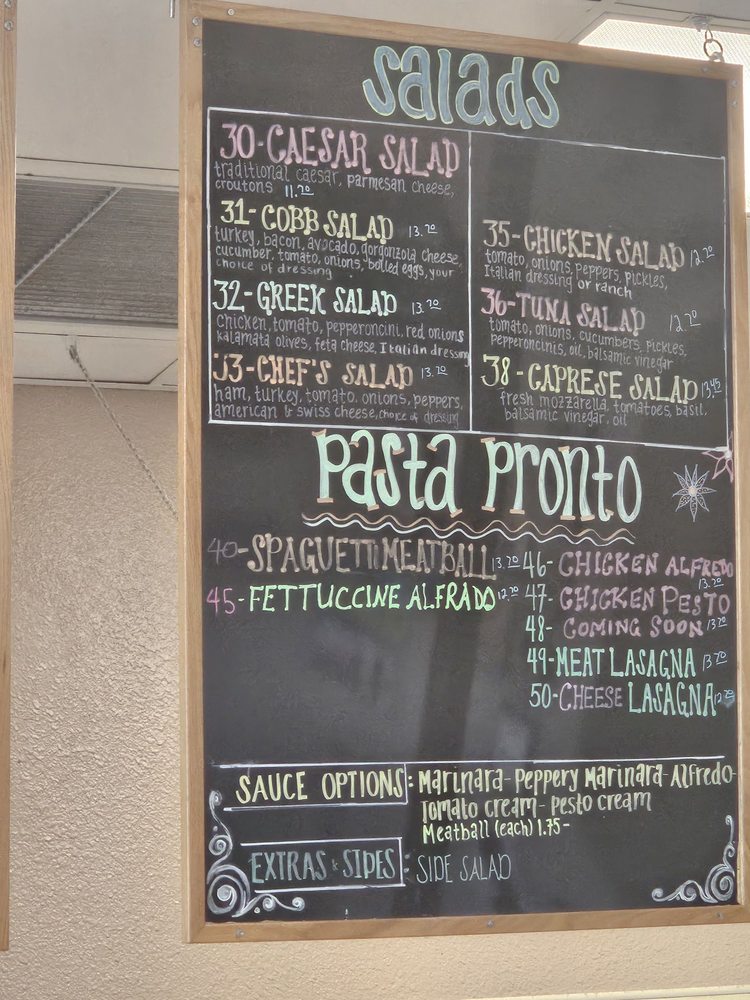 salads
30-CAESAR SALAD
traditional caesar, parmesan cheese,
croutons 11.20
31-COBB SALAD 13.20
turkey, bacon, avocado, gorgonzola cheese,
cucumber, tomato, onions, boiled eggs, your
choice of dressing
32-GREEK SALAD 13.20
Chicken, tomato, pepperoncini, red onions
kalamata olives, feta cheese, Italian dressing
33-CHEF'S SALAD 13.20
ham, turkey, tomato, onions, peppers,
american & swiss cheese, choice of dressing
35-CHICKEN SALAD 12.20
tomato, onions, peppers, pickles,
Italian dressing or ranch
36-TUNA SALAD 12.20
tomato, onions, cucumbers, pickles,
Pepperoncinis, oil, balsamic vinegar
38-CAPRESE SALAD 13.45
fresh mozzarella, tomatoes, basil,
balsamic vinegar, oil
Pasta Pronto
40-SPAGUETTI MEATBALL 13.20
45-FETTUCCINE ALFRADO 12.20
46-CHICKEN ALFREDO
13.20
47-CHICKEN PESTO
48-COMING SOON 13.20
49-MEAT LASAGNA 13.20
50-CHEESE LASAGNA 12.20
SAUCE OPTIONS: Marinara-Peppery Marinara-Alfredo-
Tomato cream-Pesto cream
Meatball (each) 1.75-
EXTRAS & SIDES: SIDE SALAD